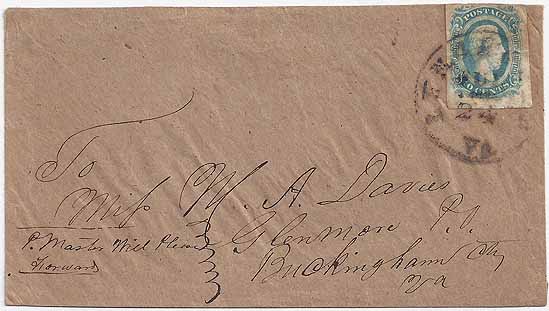 POSTAGE
CENTS
24
Va
To
Miss M. A. Davies
Glenmore P.O.
P. Master Will Please
Forward
Buckingham Cty
Va